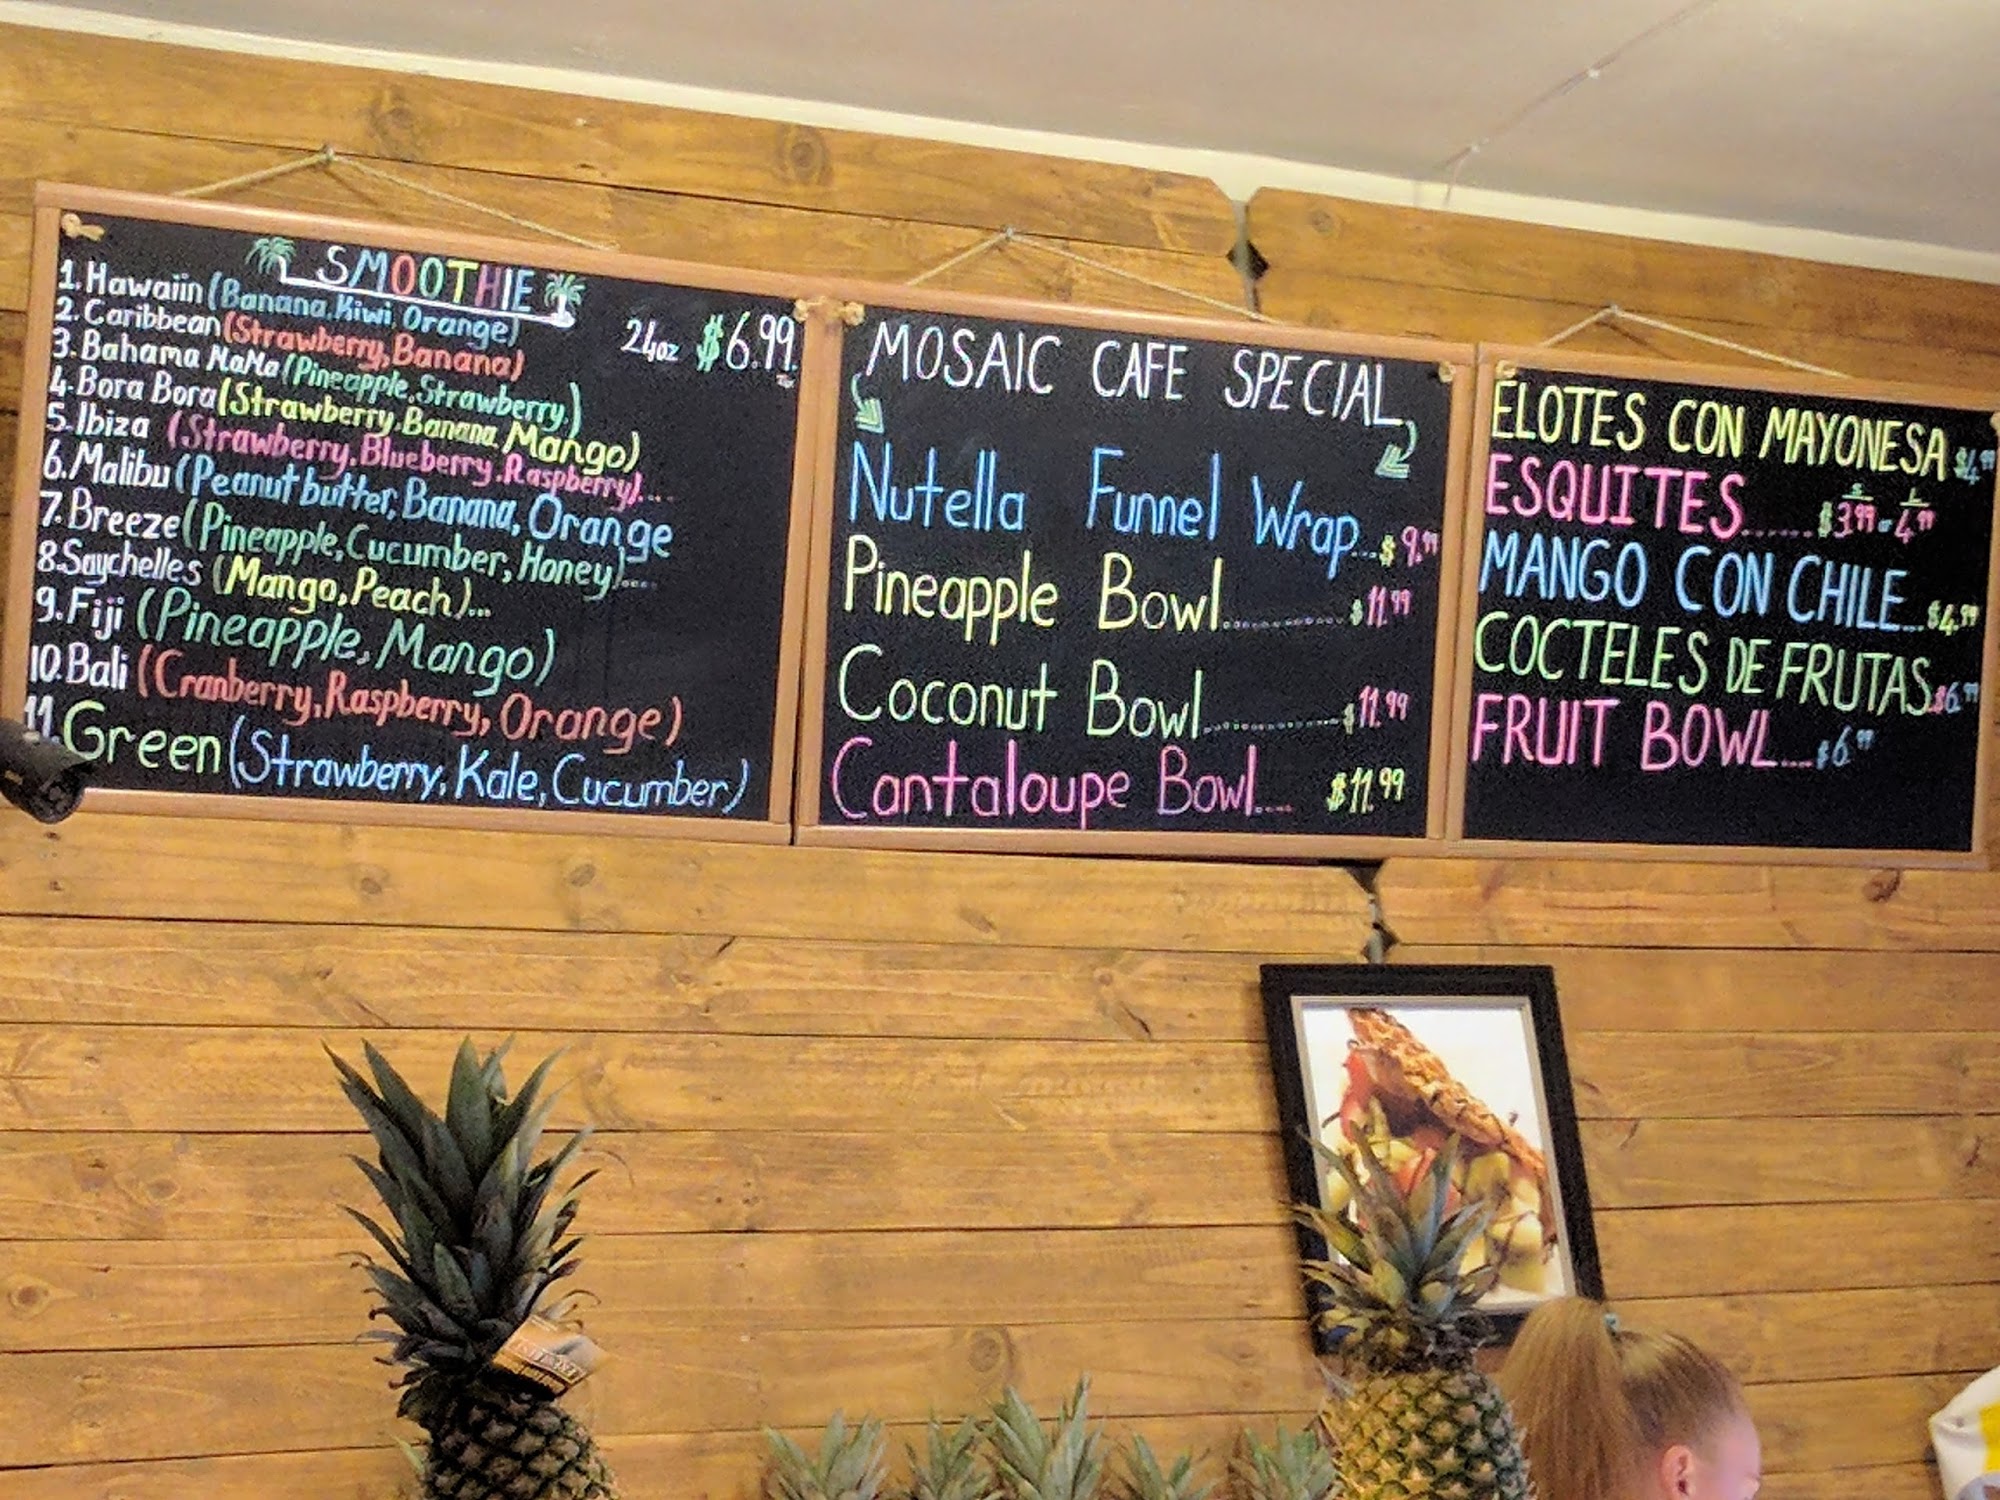 SMOOTHIE
24oz $6.99
1. Hawaiin (Banana, Kiwi, Orange)
2. Caribbean (Strawberry, Banana)
3. Bahama MaMa (Pineapple, Strawberry)
4. Bora Bora (Strawberry, Banana, Mango)
5. Ibiza (Strawberry, Blueberry, Raspberry)....
6. Malibu (Peanut butter, Banana, Orange
7. Breeze (Pineapple, Cucumber, Honey)....
8. Saychelles (Mango, Peach)...
9. Fiji (Pineapple, Mango)
10. Bali (Cranberry, Raspberry, Orange)
11. Green (Strawberry, Kale, Cucumber)
MOSAIC CAFE SPECIAL
Nutella Funnel Wrap...$9.99
Pineapple Bowl............$11.99
Coconut Bowl............$11.99
Cantaloupe Bowl.... $11.99
ELOTES CON MAYONESA $4.99
ESQUITES...... S $3.99 or L 4.99
MANGO CON CHILE...$4.99
COCTELES DE FRUTAS.$6.99
FRUIT BOWL....$6.99